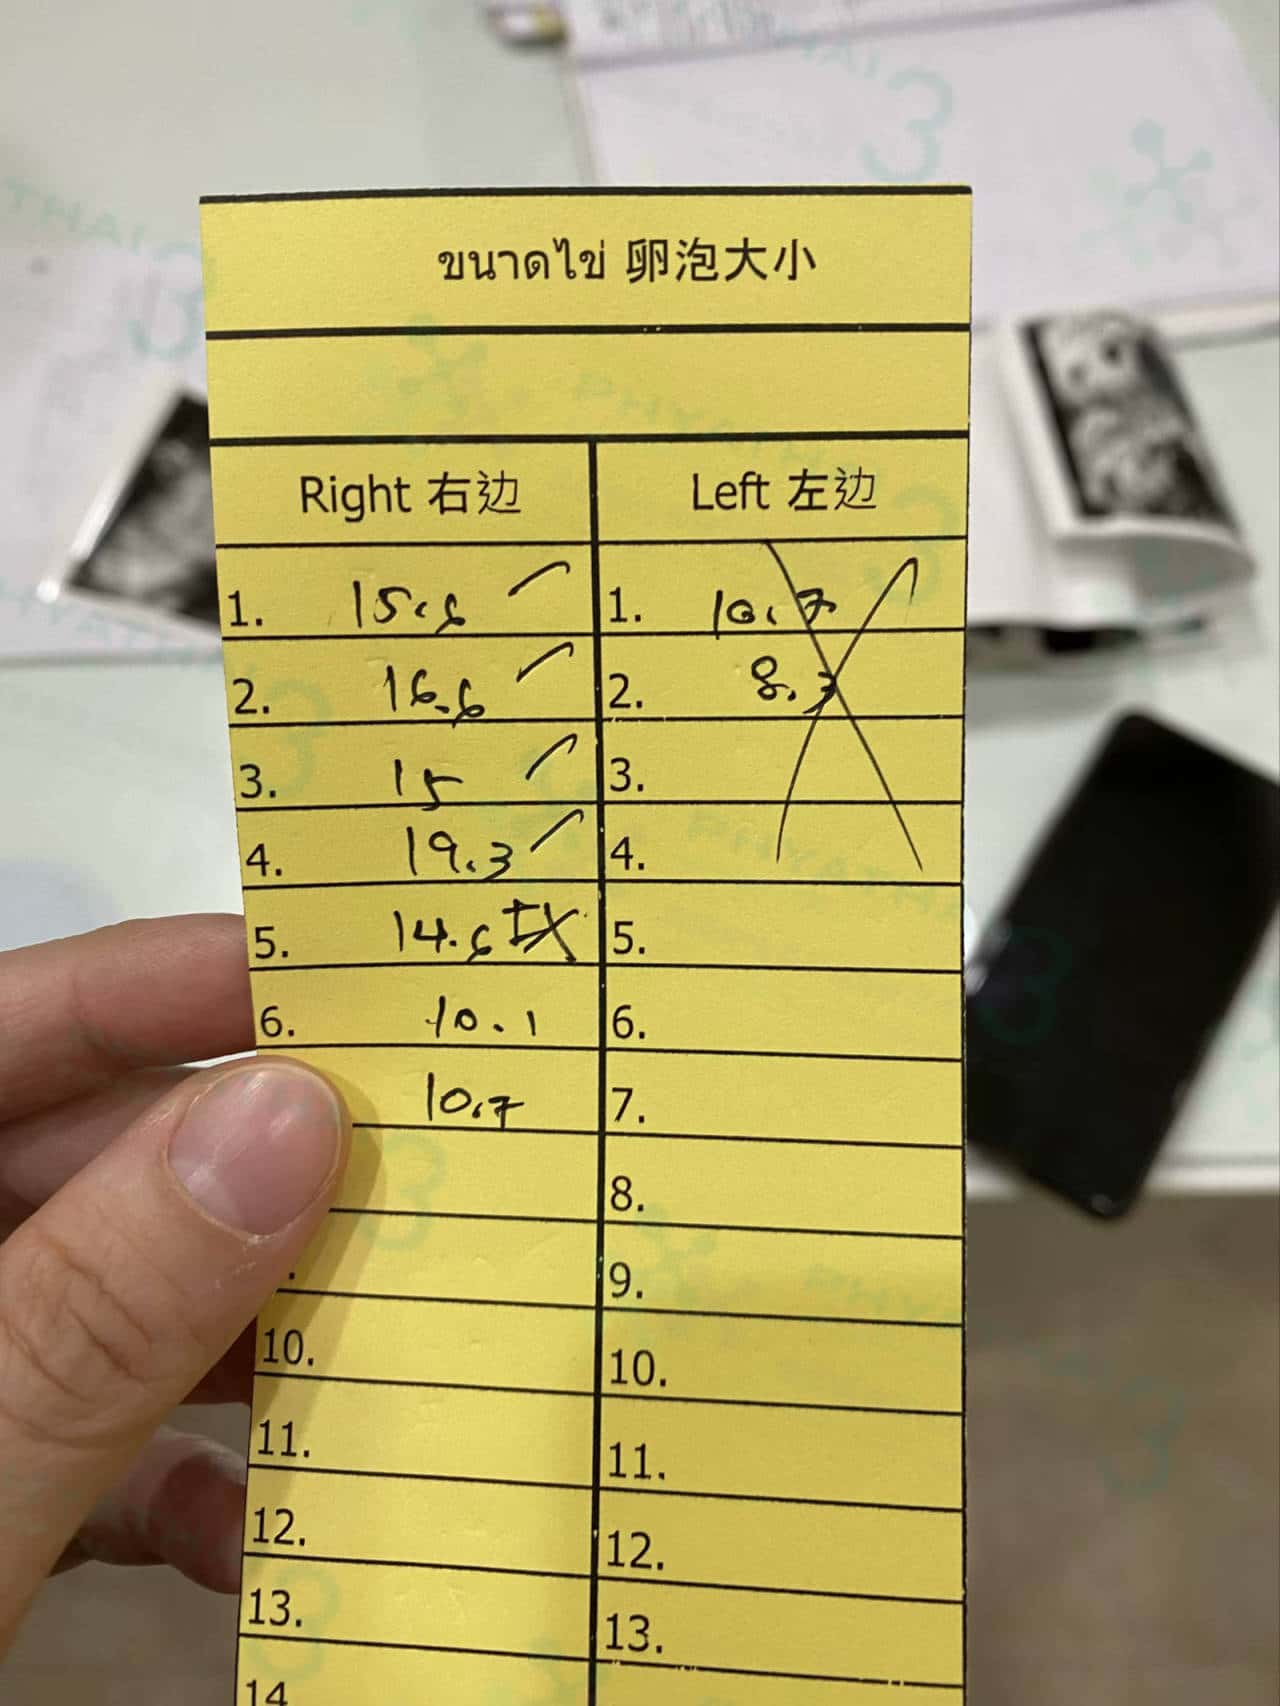 ขนาดไข่ 卵泡大小
Right 右边 Left 左边
1. 15.6 1. 10.7
2. 16.6 2. 8.3
3. 15 3.
4. 19.3 4.
5. 14.6 5.
6. 10.1 6.
10.7 7.
8.
9.
10. 10.
11. 11.
12. 12.
13. 13.
14